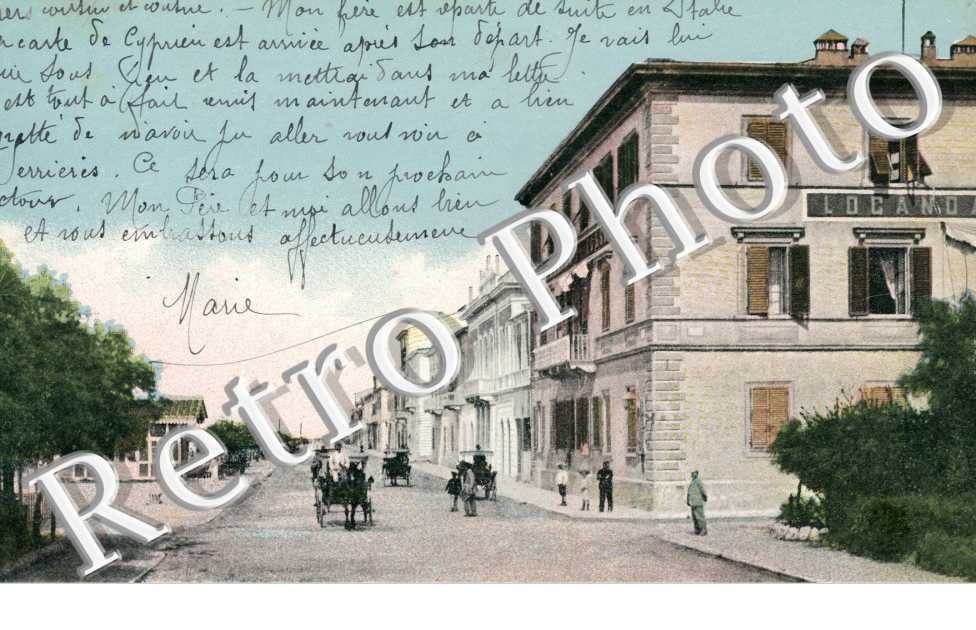 cousin et cousine. - Mon frère est reparti de suite en Italie
carte de Cyprien est arrivée après son départ. Je vais lui
sous lieu et la mettrai dans ma lettre.
est tout à fait remis maintenant et a bien
de n'avoir pu aller vous voir à
Ferrières. Ce sera pour son prochain
Mon Père et moi allons bien
et vous embrassons affectueusement
Marie
LOCANDA
Retro Photo